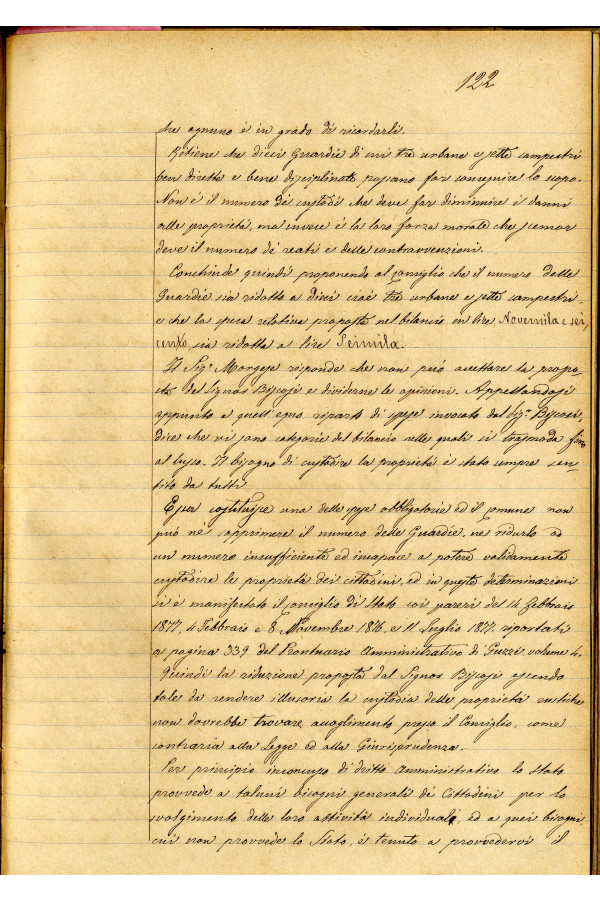 122
che ognuno è in grado di ricordarli.
Ritiene che dieci Guardie di cui tre urbane e sette campestri
ben dirette e bene disciplinate possano far conseguire lo scopo.
Non è il numero de' custodi che deve far diminuire i danni
alle proprietà, ma invece è la loro forza morale che scemar
deve il numero de' reati e delle contravvenzioni.
Conchiude quindi proponendo al Consiglio che il numero delle
Guardie sia ridotto a dieci cioè tre urbane e sette campestri
e che la spesa relativa proposta nel bilancio in lire Novemila e sei
cento, sia ridotta a lire Seimila.
Il Sigr Morgese risponde che non può accettare la propo-
sta del Signor Biscosi e dividerne le opinioni. Appellandosi
appunto a quell'equo riparto di spese invocato dal Sigr Biscosi,
dice che vi sono categorie del bilancio nelle quali si trasmoda fino
al lusso. Il bisogno di custodire la proprietà è stato sempre sen-
tito da tutti
Essa costituisce una delle spese obbligatorie ed il Comune non
può nè sopprimere il numero delle Guardie, ne ridurlo ad
un numero insufficiente ed incapace a potere validamente
custodire le proprietà dei cittadini, ed in queste determinazioni
si è manifestato il Consiglio di Stato coi pareri del 14 Febbraio
1877, 4 Febbraio e 8 Novembre 1876 e 11 Luglio 1877 riportati
a pagina 339 del Prontuario Amministrativo di Guzzi volume 4.
Quindi la riduzione proposta dal Signor Biscosi essendo
tale da rendere illusoria la custodia delle proprietà rustiche
non dovrebbe trovare accoglimento presso il Consiglio, come
contraria alla Legge ed alla Giurisprudenza.
Per principio inconcusso di dritto Amministrativo lo Stato
provvede a taluni bisogni generali de' Cittadini per lo
svolgimento delle loro attività individuali, ed a quei bisogni
cui non provvede lo Stato, è tenuto a provvedervi il